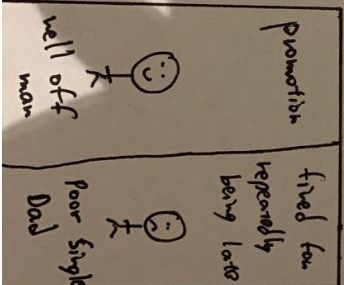 promotion
well off
man
fired for
repeatedly
being late
Poor Single
Dad